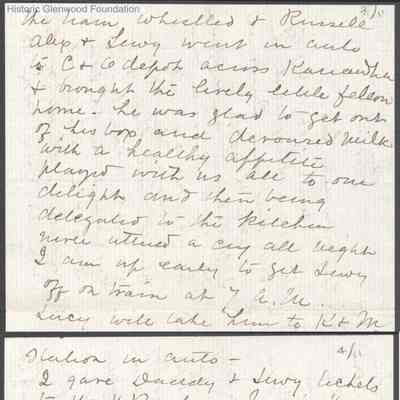 Historic Glenwood Foundation
the train whistled & Russell
Alex & Lewy went in auto
to C & O depot across Kanawha
& brought the lively little fellow
home. he was glad to get out
of his box and devoured milk
with a healthy appetite
played with us all to our
delight and then being
delegated to the kitchen
never uttered a cry all night
I am up early to get Lewy
off on train at 7 A.M.
Lucy will take him to K & M
station in auto -
I gave Daddy & Lewy tickets